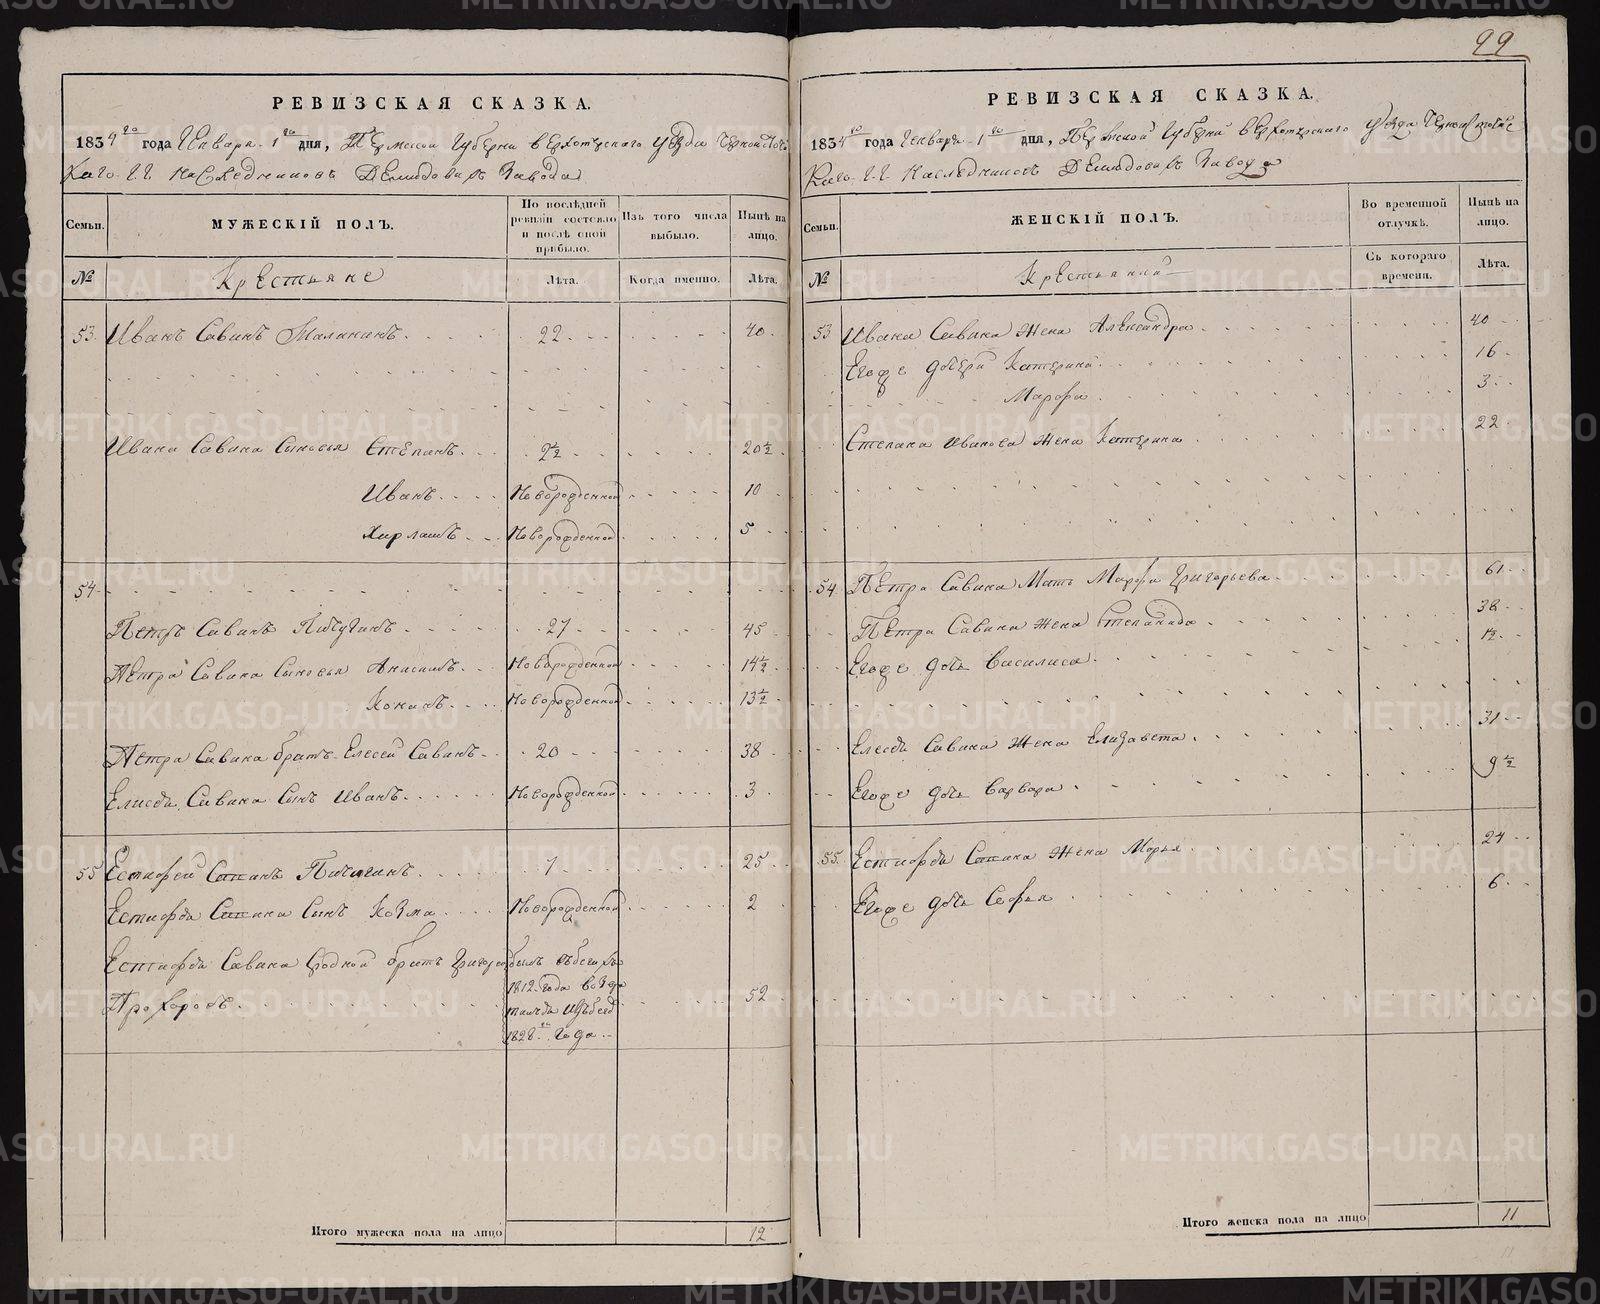 99
РЕВИЗСКАЯ СКАЗКА.
1834го года Генваря 1го дня, Пермской Губернии Верхотурского уезда Черноисточин
скаго Г.г. Наследниковъ Демидовыхъ Завода
Семьи. МУЖЕСКІЙ ПОЛЪ. По послѣдней ревизіи состояло и послѣ оной прибыло. Изъ того числа выбыло. Нынѣ на лицо.
№ Крестьяне Лѣта. Когда именно. Лѣта.
53 Иванъ Савинъ 22 40
Ивана Савина Сыновья Степанъ 2½ 20½
Иванъ Новорожденной 10
Новорожденной 5
54
Петръ Савинъ Пичугинъ 27 45
Петра Савина Сыновья Новорожденной 14½
Кононъ Новорожденной 13½
Петра Савина братъ Елесей Савинъ 20 38
Елисея Савина Сынъ Иванъ Новорожденной 3
55 Савинъ Пичугинъ 7 25
Савина Сынъ Козма Новорожденной 2
Савина братъ Григорей былъ въбегахъ
Прохоровъ 1812 года 52
1828го года
Итого мужеска пола на лицо 12
РЕВИЗСКАЯ СКАЗКА.
1834го года Генваря 1го дня, Пермской Губернии Верхотурского уезда Черноисточин
скаго Г.г. Наследниковъ Демидовыхъ Завода
Семьи. ЖЕНСКІЙ ПОЛЪ. Во временной отлучкѣ. Нынѣ на лицо.
№ Крестьянки Съ котораго времени. Лѣта.
53 Ивана Савина Жена Александра 40
Егоже дочери Катерина 16
Марфа 3
Степана Иванова Жена Катерина 22
54 Петра Савина Мать Марфа Григорьева 61
Петра Савина Жена Степанида 38
Егоже дочь Василиса 1½
Елесея Савина Жена Елизавета 31
Егоже дочь Варвара 9½
55 Савина Жена Марья 24
Егоже дочь Софья 6
Итого женска пола на лицо 11
METRIKI.GASO-URAL.RU